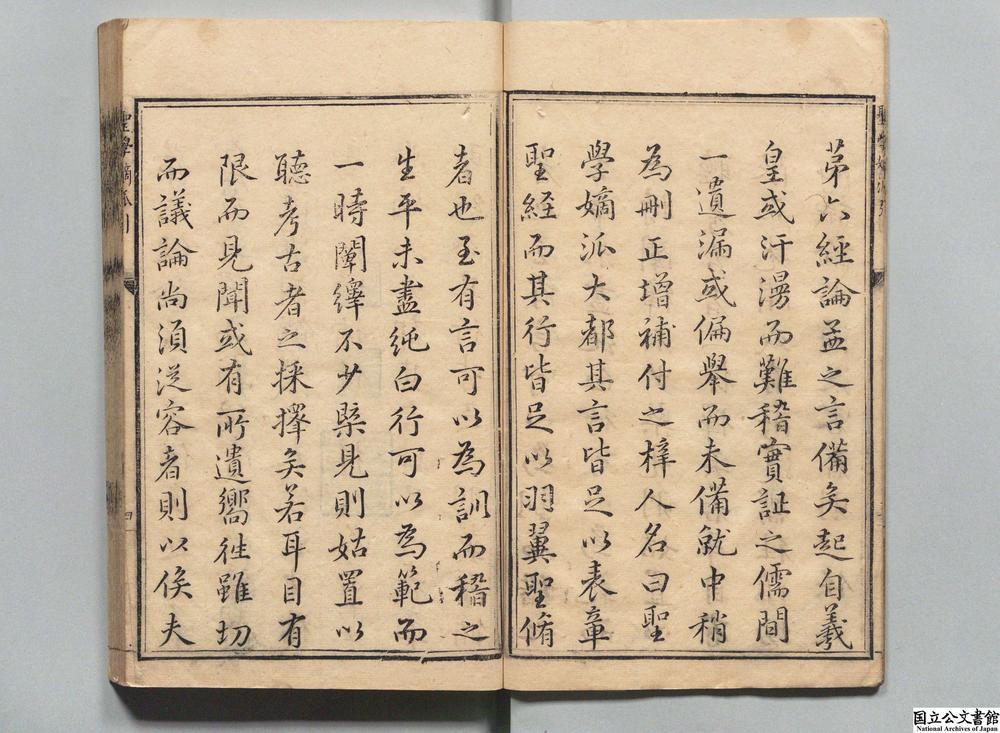 苐六經論孟之言備矣起自羲
皇或汗漫而難稽實証之儒間
一遺漏或偏舉而未備就中稍
為刪正增補付之梓人名曰聖
學嫡派大都其言皆足以表章
聖經而其行皆足以羽翼聖脩
者也至有言可以為訓而稽之
生平未盡純白行可以為範而
一時闡繹不少槩見則姑置以
聽考古者之採擇矣若耳目有
限而見聞或有所遺嚮往雖切
而議論尚須從容者則以俟夫
聖學嫡派引
四
国立公文書館
National Archives of Japan